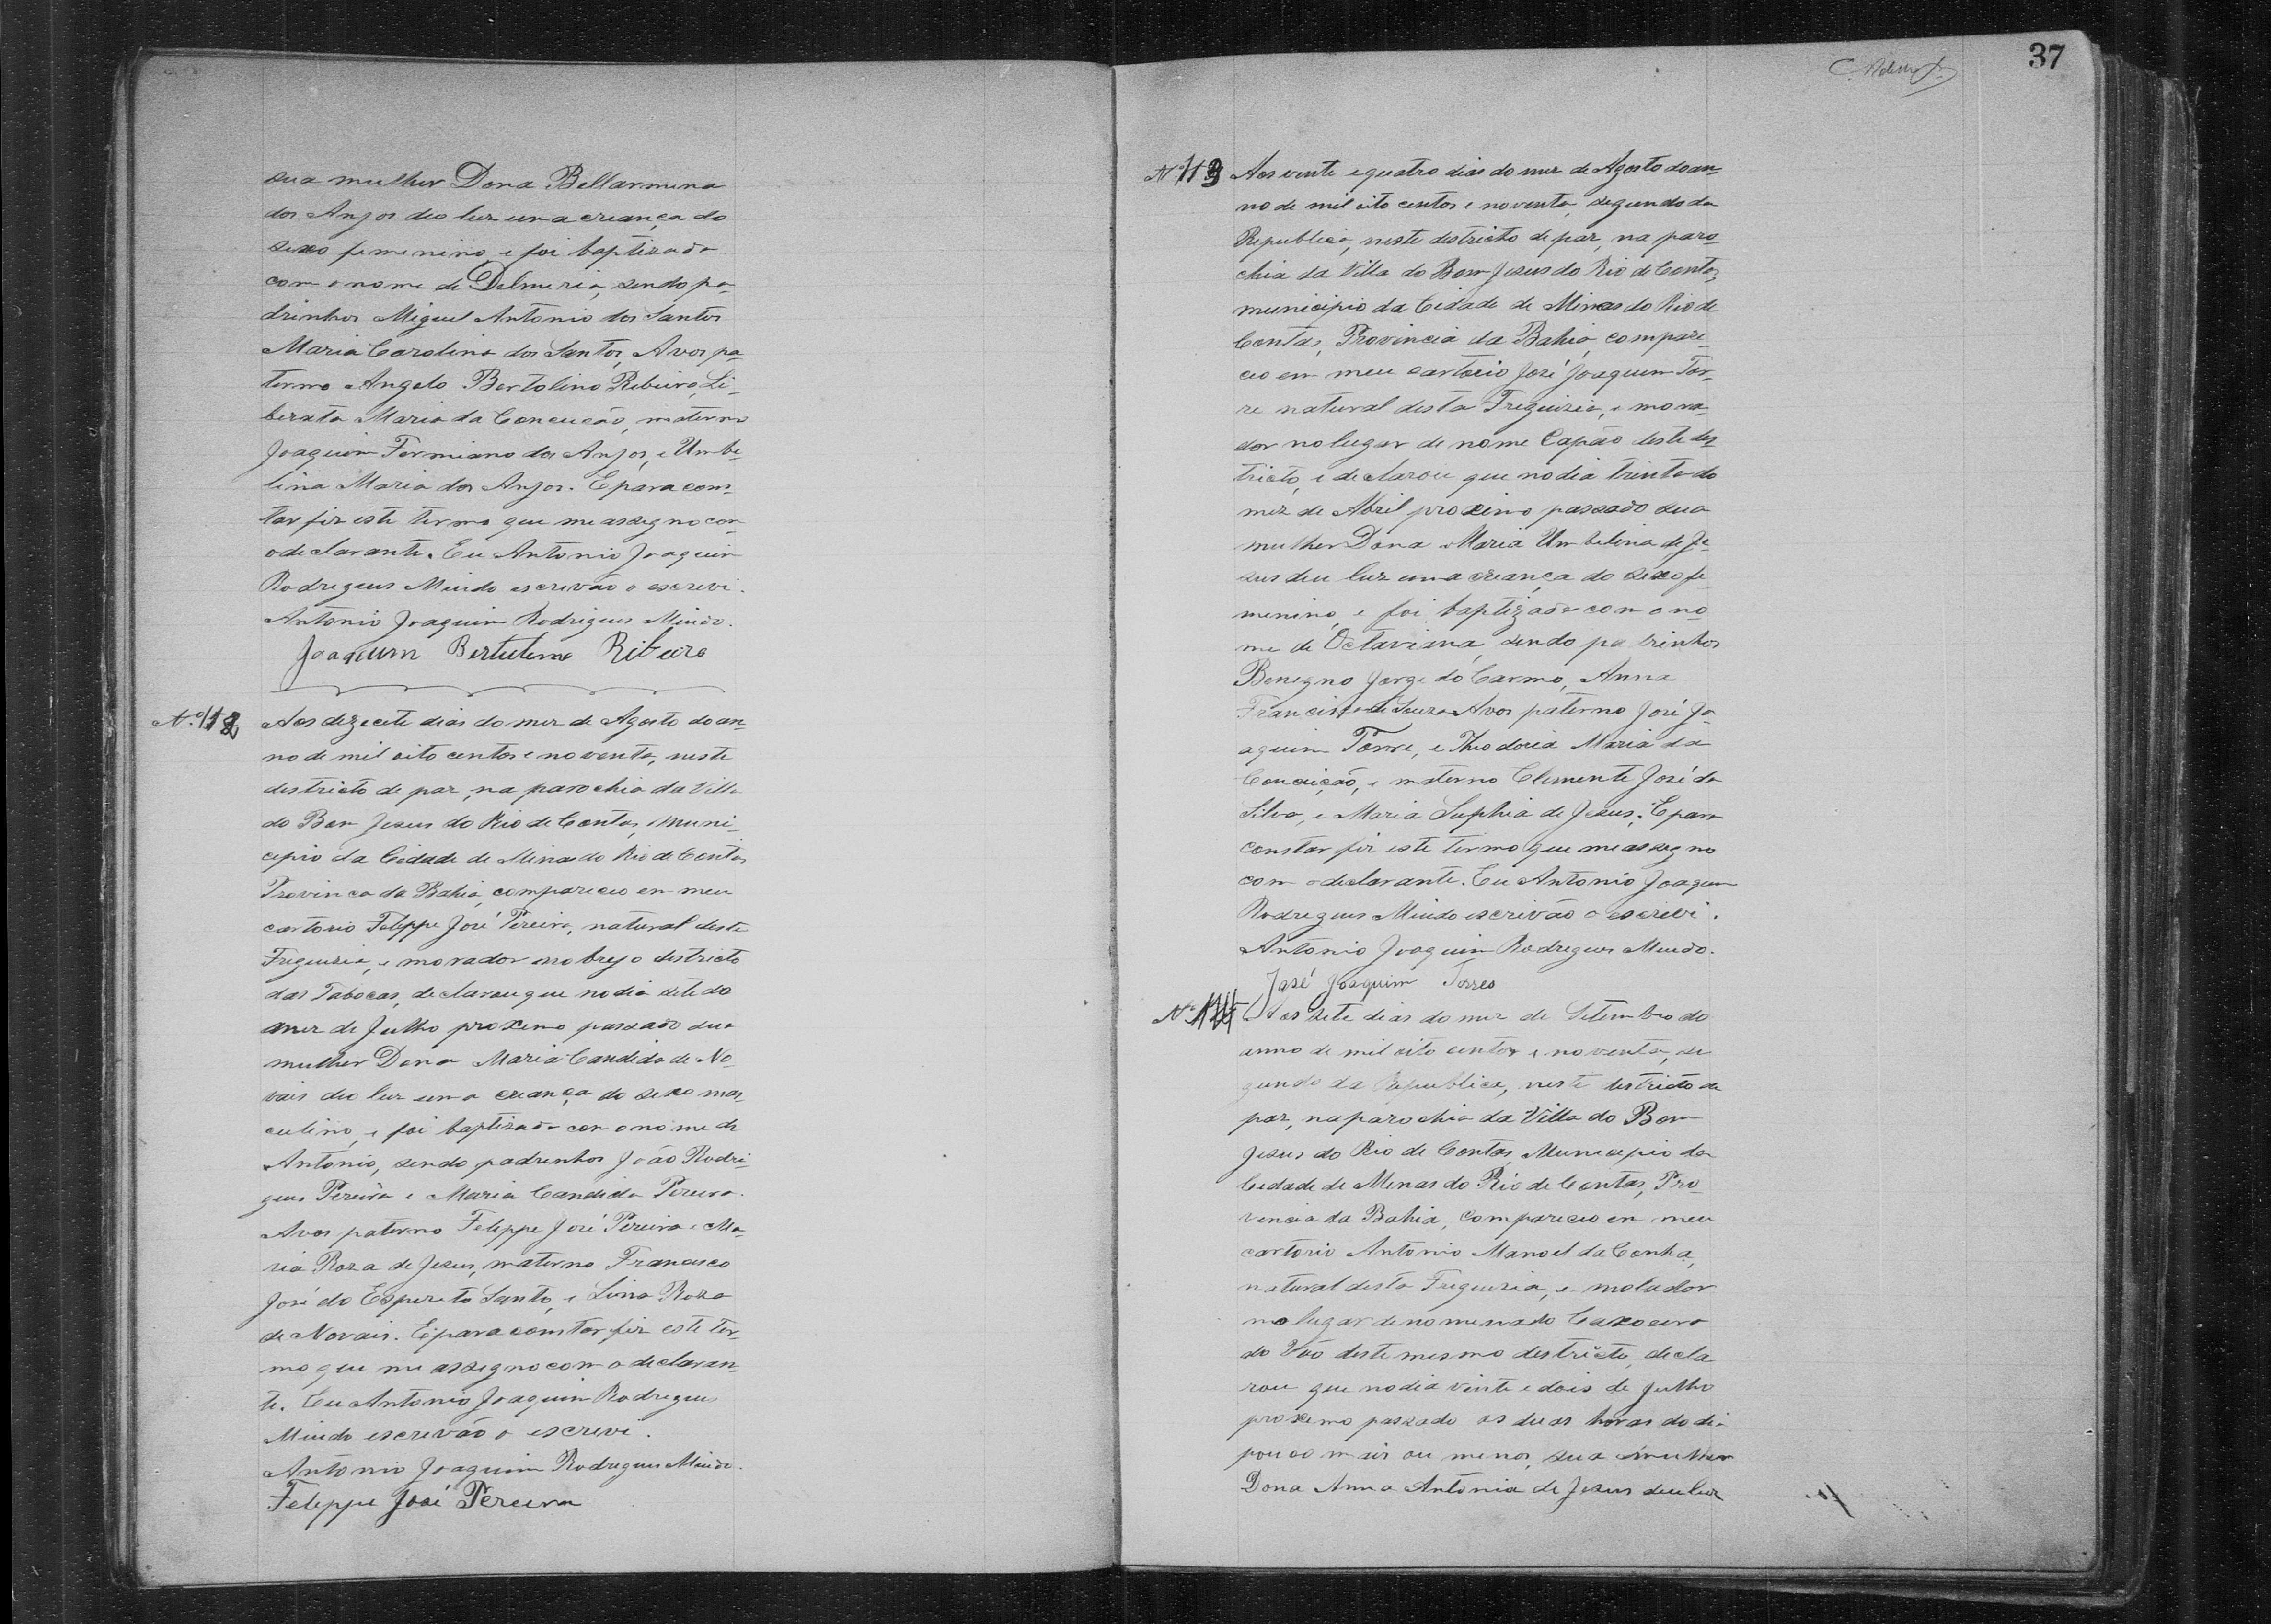 sua mulher Dona Bellarmina
dos Anjos deo luz uma creança do
sexo femenino, e foi baptizada
com o nome de Delmeria, sendo pa-
drinhos Miguel Antonio dos Santos
Maria Carolina dos Santos, Avos pa-
terno Angelo Bertolino Ribeiro, Li-
berata Maria da Conceicão, materno
Joaquim Fermiano dos Anjos, e Umbe-
lina Maria dos Anjos. E para cons-
tar fiz este termo que me assegno com
o declarante. Eu Antonio Joaquim
Rodregues Miudo escrevão o escrevi.
Antonio Joaquim Rodrigues Miudo.
Joaquim Bertuteno Ribeiro
N.º 112
Aos dezecete dias do mez de Agosto do an-
no de mil oito centos e noventa, neste
destricto de paz, na parochia da Villa
do Bom Jesus do Rio de Contas, muni-
cepio da Cidade de Minas do Rio de Contas
Provinca da Bahia, compareceo em meu
cartorio Felippe José Pereira, natural desta
Freguezia, e morador no brejo destricto
das Tabocas, declarou que no dia sete do
mez de Julho proxemo passado sua
mulher Dona Maria Candida de No-
vais deo luz uma creança do sexo mas-
culino, e foi baptizada com o nome de
Antonio, sendo padrenhos João Rodri-
gues Pereira e Maria Candida Pereira.
Avos paterno Feleppe José Pereira e Ma-
ria Roza de Jesus, materno Francisco
José do Espereto Santo, e Lina Roza
de Novais. E para constar fiz este ter-
mo que me assegno com o declaran-
te. Eu Antonio Joaquim Rodregues
Miudo escrevão o escrevi.
Antonio Joaquim Rodregues Miudo.
Feleppe José Pereira
37
N.º 113
Aos vente e quatro dias do mez de Agosto do an-
no de mil oito centos e noventa, segundo da
Republica, neste destricto de paz, na paro-
chia da Villa do Bom Jesus do Rio de Contas,
municipio da Cidade de Minas do Rio de
Contas, Provincia da Bahia, compare-
ceo em meu cartorio José Joaquim Tor-
re natural desta Freguizia, e mora-
dor no lugar de nome Capão deste des-
tricto, e declarou que no dia trinta do
mez de Abril proximo passado sua
mulher Dona Maria Umbelina de Je-
sus deu luz uma creança do sexo fe-
menino, e foi baptizada com o no-
me de Octaviana, sendo padrinhos
Benegno Jorge do Carmo, Anna
Francisca de Souza Avos paterno José Jo-
aquim Torre, e Theodoria Maria da
Conceição, e materno Clemente José da
Silva, e Maria Suphia de Jesus. E para
constar fiz este termo que me assegno
com o declarante. Eu Antonio Joaquim
Rodregues Miudo escrivão o escrevi.
Antonio Joaquim Rodregues Miudo.
José Joaquim Torres
N.º 114
Aos sete dias do mez de Setembro do
anno de mil oito centos e noventa, se-
gundo da Republica, neste destricto de
paz, na parochia da Villa do Bom
Jesus do Rio de Contas Municepio da
Cedade de Menas do Rio de Contas, Pro-
vencia da Bahia, compareceo em meu
cartorio Antonio Manoel da Conha,
natural desta Freguezia, e molador
no lugar denomenado Caxoeira
do Váo deste mesmo destricto, decla-
rou que no dia vinte e dois de Julho
proxemo passado as duas horas do dia
pouco mais ou menos, sua mulher
Dona Anna Antonia de Jesus deu luz